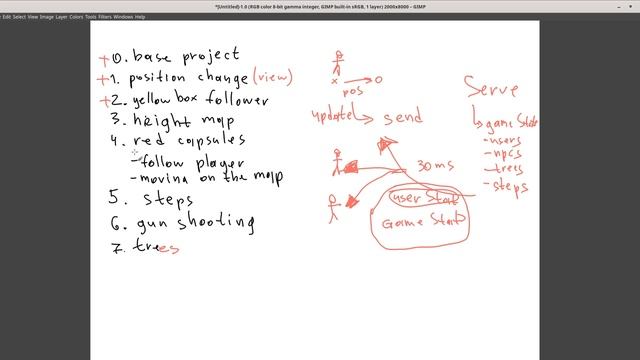 *[Untitled]-1.0 (RGB color 8-bit gamma integer, GIMP built-in sRGB, 1 layer) 2000x8000 – GIMP
Edit Select View Image Layer Colors Tools Filters Windows Help
+0. base project
+1. position change (view)
+2. yellow box follower
3. height map
4. red capsules
-follow player
-moving on the map
5. steps
6. gun shooting
7. trees
x → o
pos
update → send
30 ms
user Stat
Game Stat
Serve
game State
-users
-npcs
-trees
-steps